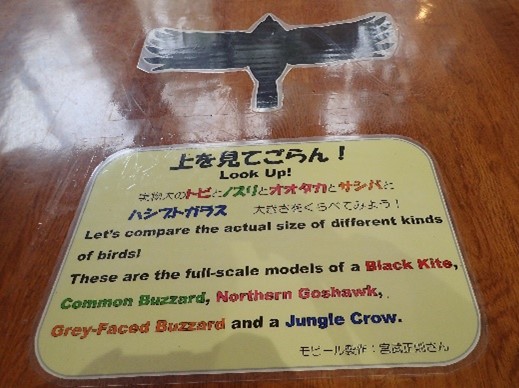 上を見てごらん！
Look Up!
実物大のトビとノスリとオオタカとサシバと
ハシブトガラス　大きさをくらべてみよう！
Let's compare the actual size of different kinds
of birds!
These are the full-scale models of a Black Kite,
Common Buzzard, Northern Goshawk,
Grey-Faced Buzzard and a Jungle Crow.
モビール製作：宮武さん